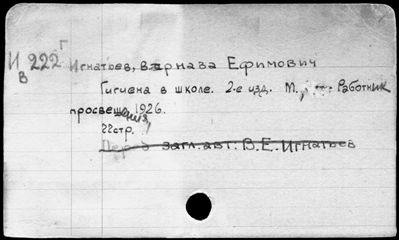 И 222 г
в
Игнатьев, Варнава Ефимович
Гигиена в школе. 2-е изд. М., Работник
просвещения, 1926.
22стр.
Пер. загл. авт: В.Е. Игнатьев